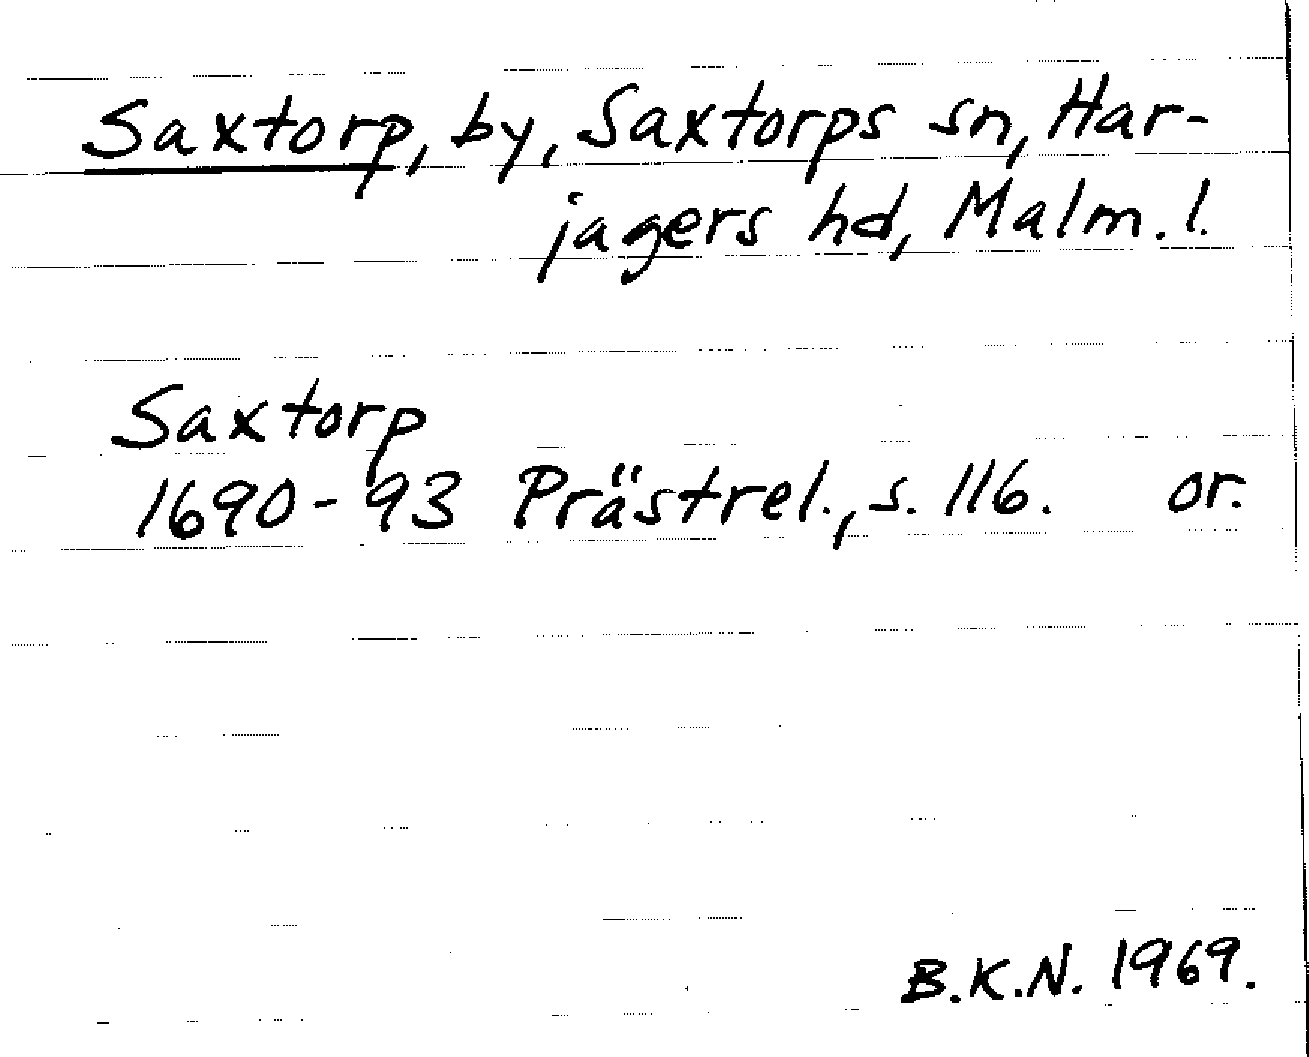 Saxtorp, by, Saxtorps sn, Har-
jagers hd, Malm. l.
Saxtorp
1690-93 Prästrel., s. 116. or.
B.K.N. 1969.